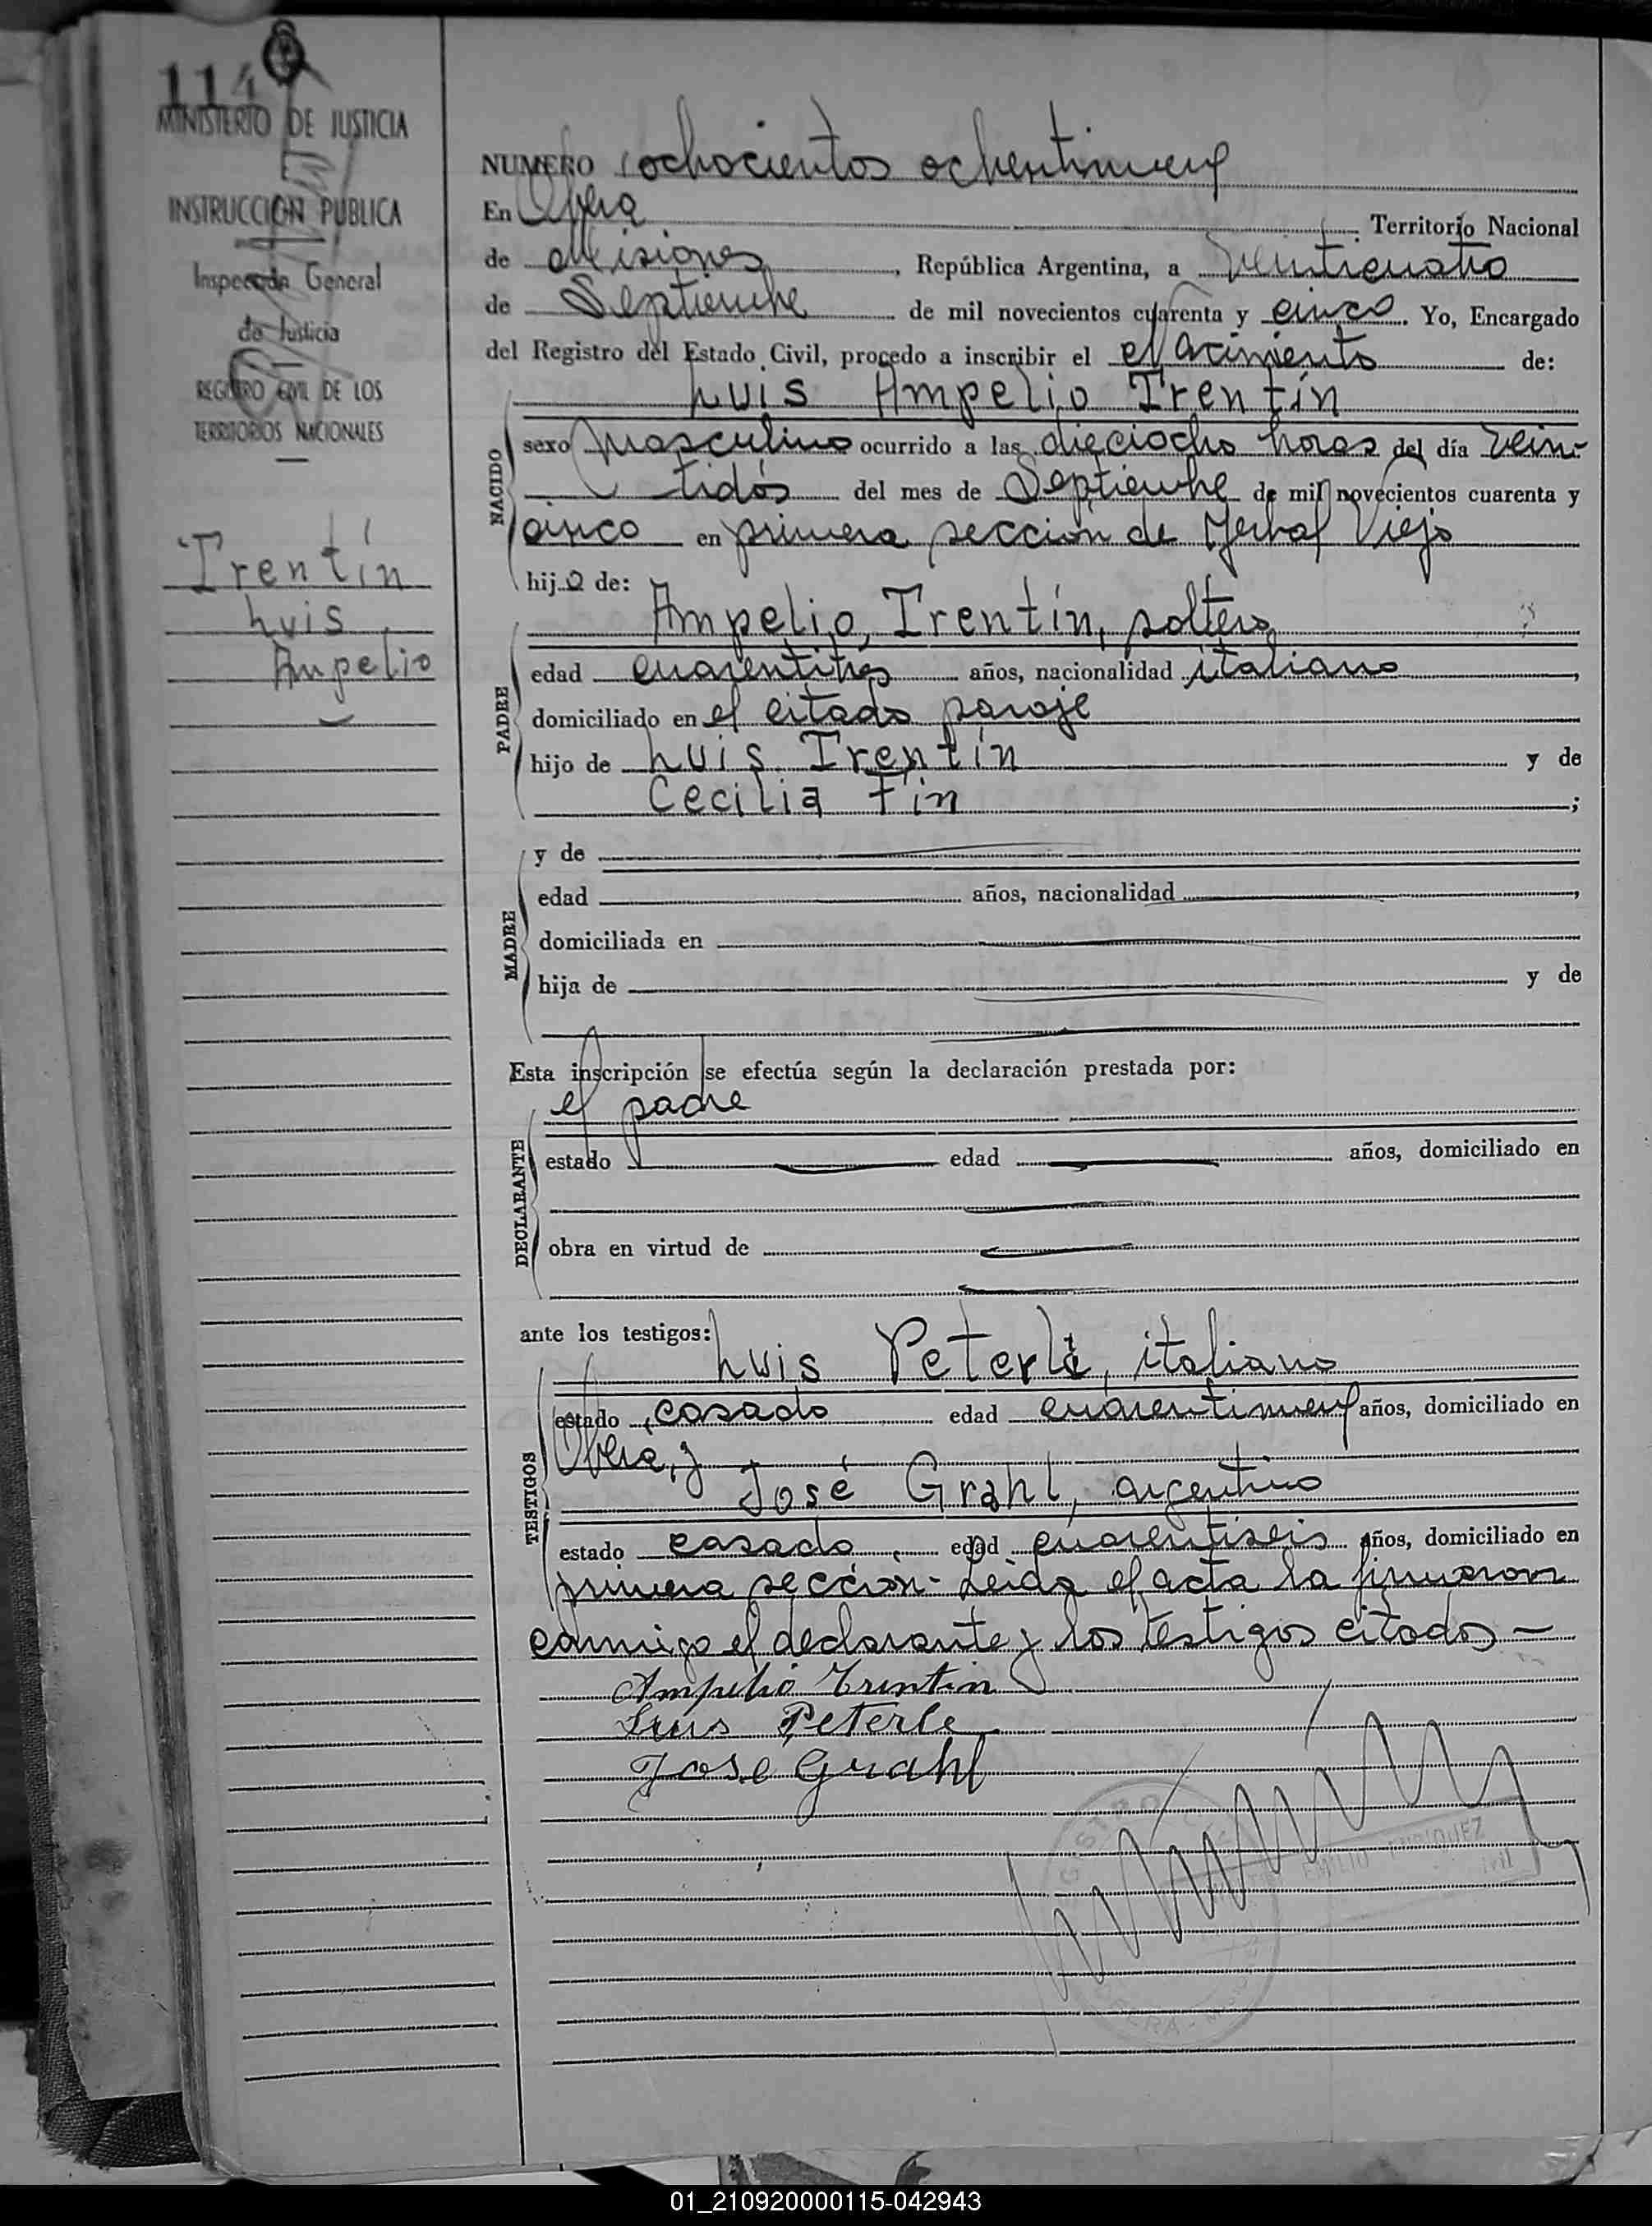 114
MINISTERIO DE JUSTICIA
E
INSTRUCCIÓN PÚBLICA
Inspección General
de Justicia
REGISTRO CIVIL DE LOS
TERRITORIOS NACIONALES
Trentín
Luis
Ampelio
NUMERO ochocientos ochentinueve
En Oberá Territorio Nacional
de Misiones, República Argentina, a veinticuatro
de Septiembre de mil novecientos cuarenta y cinco. Yo, Encargado
del Registro del Estado Civil, procedo a inscribir el nacimiento de:
Luis Ampelio Trentín
NACIDO
sexo masculino ocurrido a las dieciocho horas del día vein-
tidós del mes de Septiembre de mil novecientos cuarenta y
cinco en primera sección de Yerbal Viejo
hijo de:
PADRE
Ampelio, Trentín, soltero,
edad cuarentitres años, nacionalidad italiano,
domiciliado en el citado paraje
hijo de Luis Trentín y de
Cecilia Fin;
MADRE
y de
edad años, nacionalidad,
domiciliada en
hija de y de
Esta inscripción se efectúa según la declaración prestada por:
el padre
DECLARANTE
estado edad años, domiciliado en
obra en virtud de
ante los testigos:
Luis Peterle, italiano
TESTIGOS
estado casado edad cuarentinueve años, domiciliado en
Oberá, y
José Grahl, argentino
estado casado, edad cuarentiseis años, domiciliado en
primera sección.- Leida el acta la firmaron
conmigo el declarante y los testigos citados —
Ampelio Trentin
Luis Peterle
Jose Grahl
REGISTRO
EMILIO ENRIQUEZ
OBERA -
01_210920000115-042943